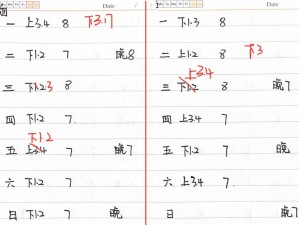 Date
一 上3.4 8 下3.17
二 下1.2 7 晚8
三 下1.2 3 8
四 下1.2 7
下1.2
五 上3.4 7 晚7
六 下1.2 7
日 下1.2 7 晚
Date
一 下1.3 8
二 上1.2 8 下3
上3.4
三 下1.2 8 晚7
四 上3.4 7
五 下1.2 7 晚7
六 上3.4 7
日 晚7